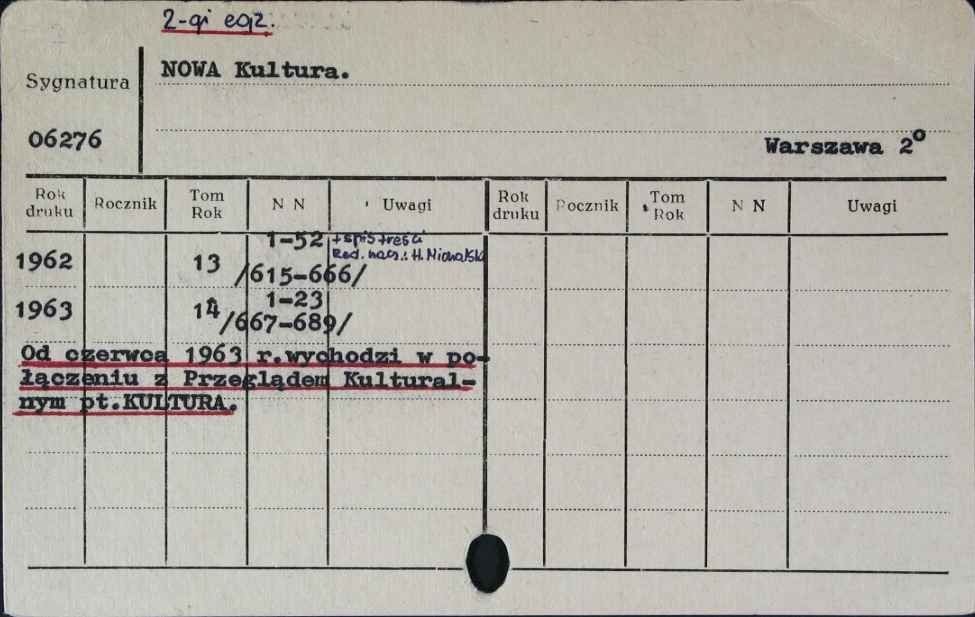 2-gi egz.
NOWA Kultura.
Sygnatura
06276
Warszawa 2°
Rok druku Rocznik Tom Rok N N Uwagi Rok druku Rocznik Tom Rok N N Uwagi
1962 13 1-52 /615-666/ + spis treści
Red. nacz.: H.
1963 14 1-23 /667-689/
Od czerwca 1963 r.wychodzi w po-
łączeniu z Przeglądem Kultural-
nym pt.KULTURA.